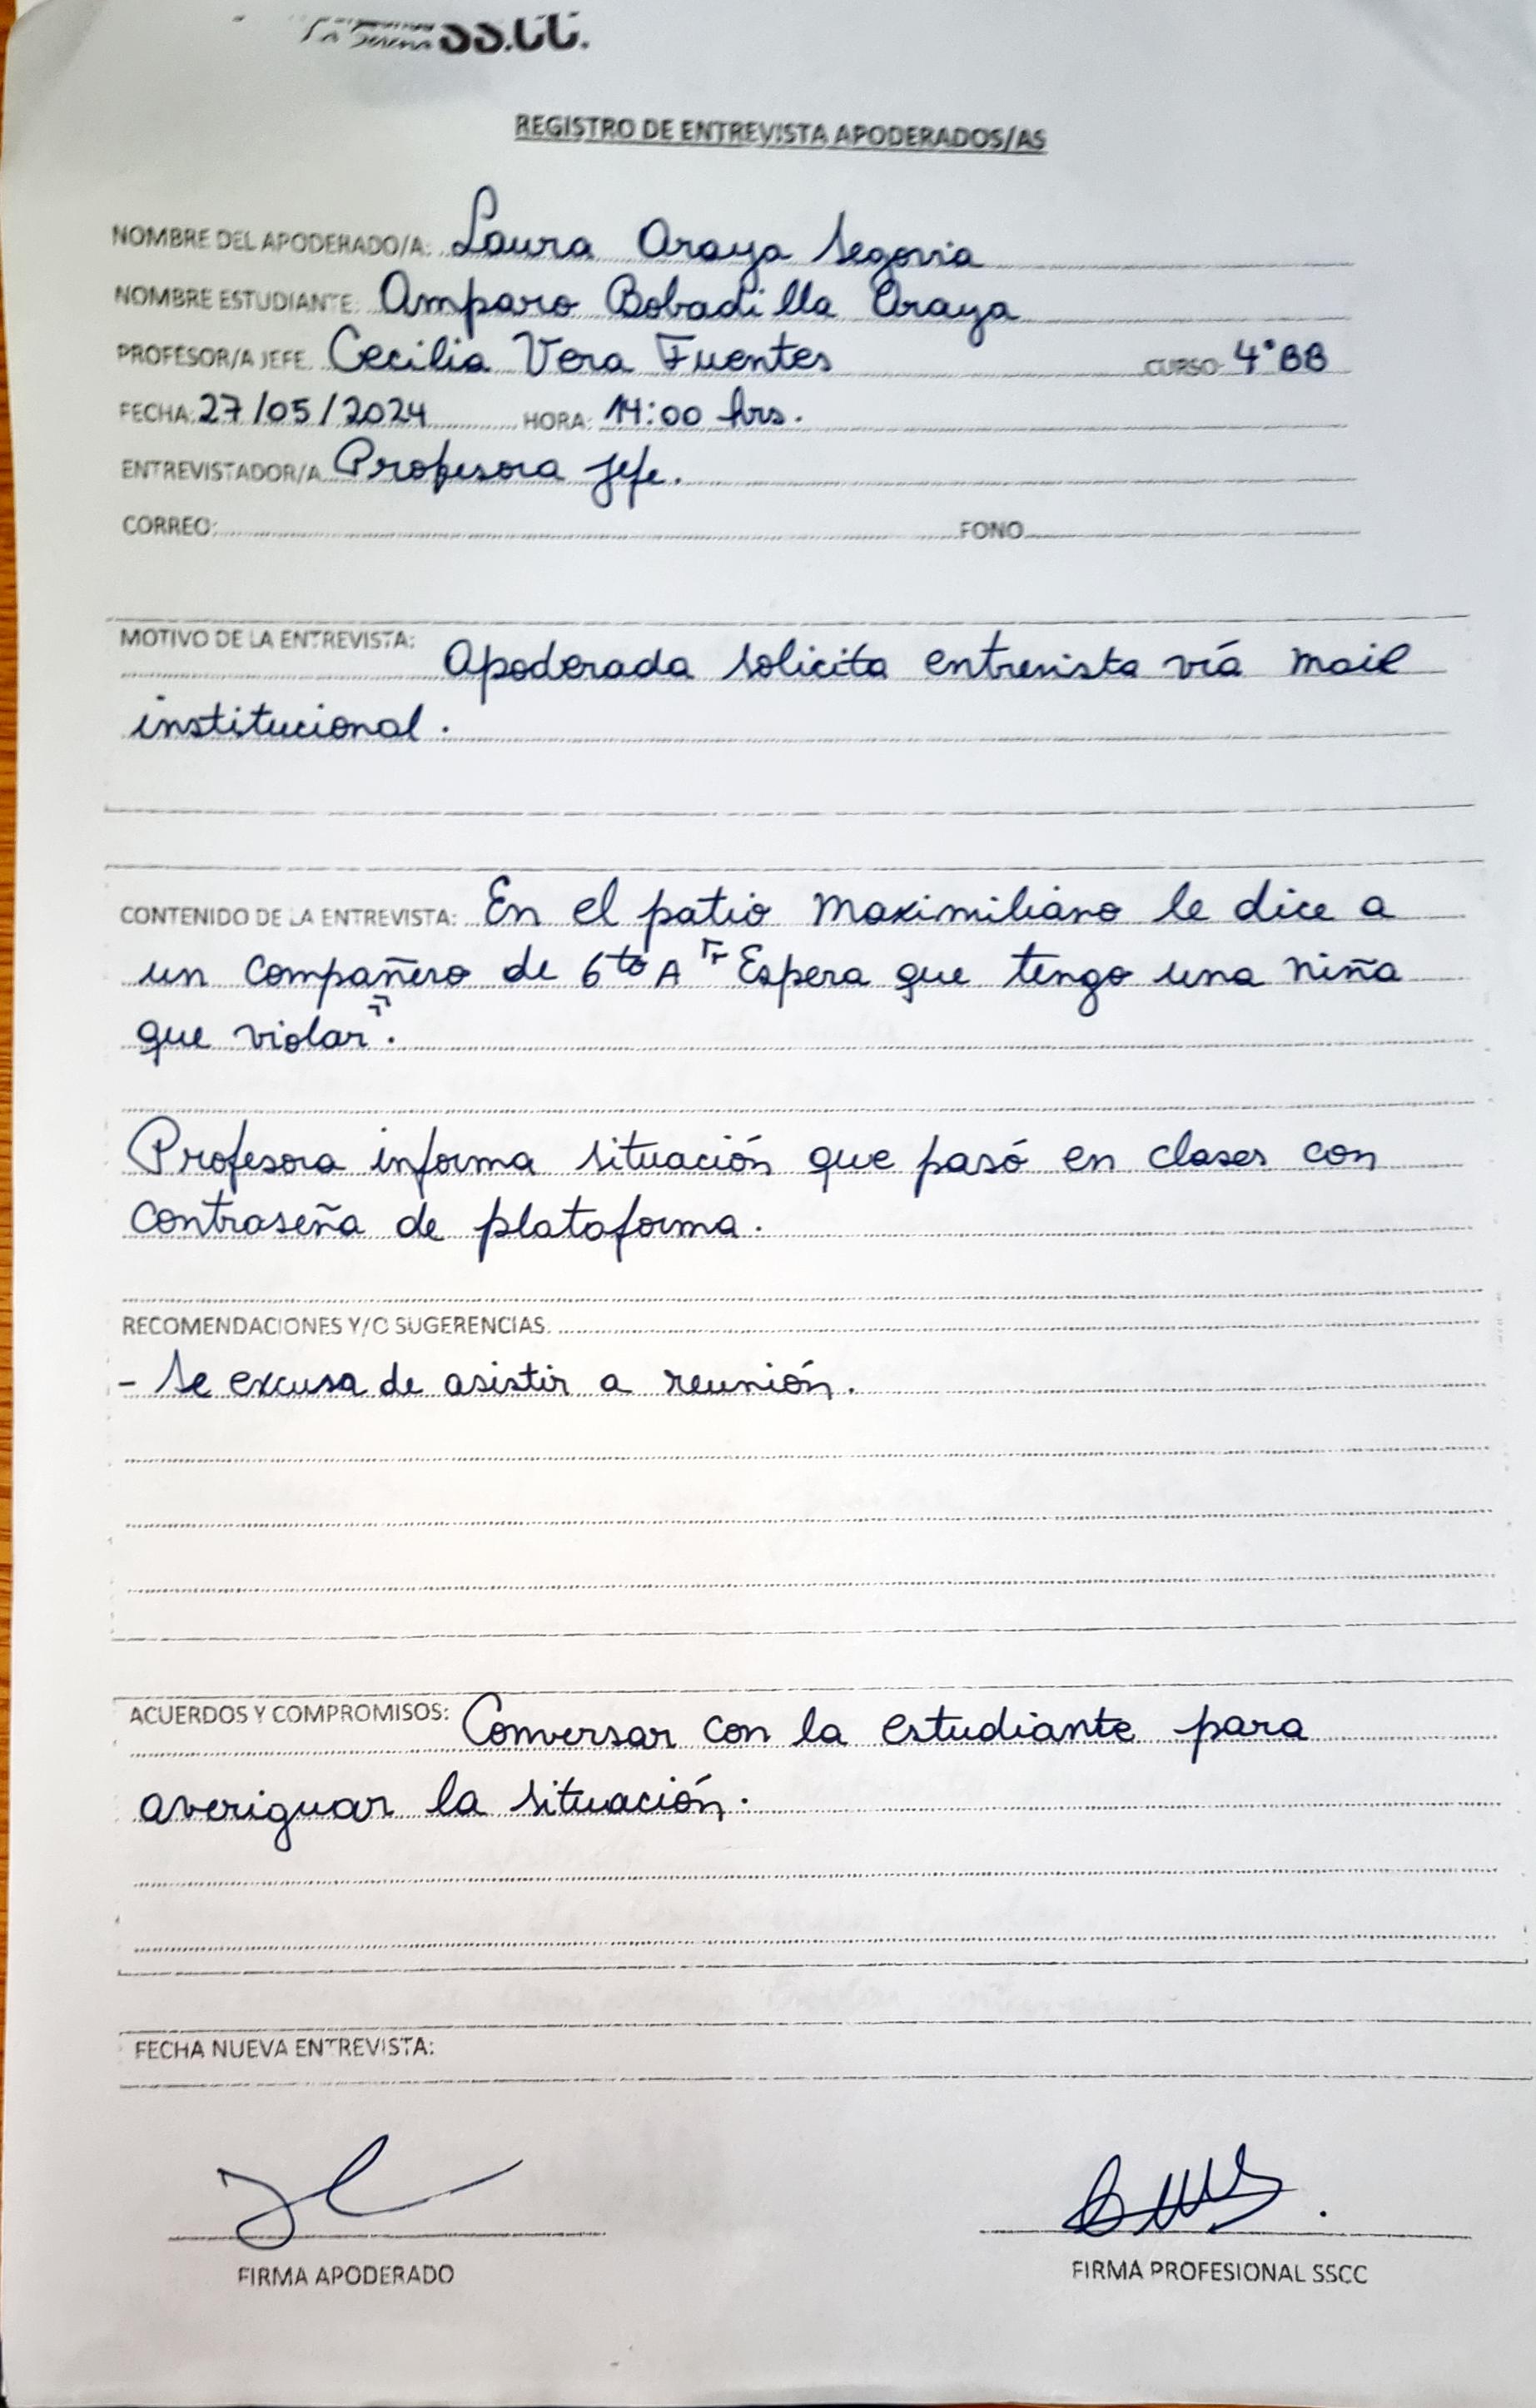 La Serena SS.CC.
REGISTRO DE ENTREVISTA APODERADOS/AS
NOMBRE DEL APODERADO/A: Laura Araya Segovia
NOMBRE ESTUDIANTE: Amparo Bobadilla Araya
PROFESOR/A JEFE: Cecilia Vera Fuentes CURSO: 4°BB
FECHA: 27/05/2024 HORA: 14:00 hrs.
ENTREVISTADOR/A Profesora jefe.
CORREO: FONO
MOTIVO DE LA ENTREVISTA: Apoderada solicita entrevista vía mail
institucional.
CONTENIDO DE LA ENTREVISTA: En el patio Maximiliano le dice a
un compañero de 6to A "Espera que tengo una niña
que violar".
Profesora informa situación que pasó en clases con
contraseña de plataforma.
RECOMENDACIONES Y/O SUGERENCIAS.
- Se excusa de asistir a reunión.
ACUERDOS Y COMPROMISOS: Conversar con la estudiante para
averiguar la situación.
FECHA NUEVA ENTREVISTA:
FIRMA APODERADO FIRMA PROFESIONAL SSCC